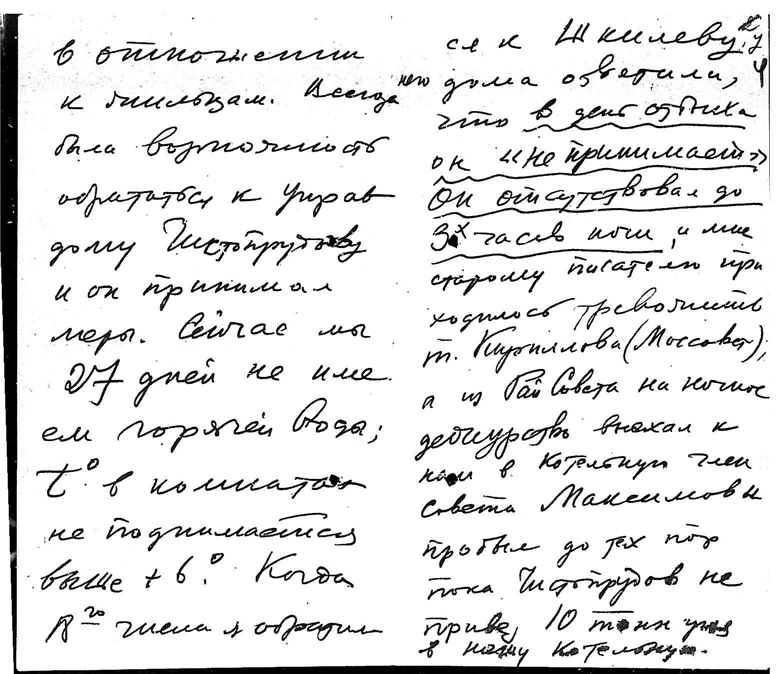 в отношении
к жильцам. Всегда
была возможность
обратиться к Управ
дому Чистопрудову
и он принимал
меры. Сейчас мы
27 дней не име
ем горячей воды;
t° в комнатах
не поднимается
выше + 6.° Когда
числа я обратил
ся к Шкилеву,
дома ответили,
что в день отдыха
он «не принимает»
Он отсутствовал до
3х часов ночи, и мне
старому писателю при
ходилось тревожить
т. Кириллова (Моссовет),
а из РайСовета на ночное
дежурство выехал к
нам в котельную член
Совета Максимов и
пробыл до тех пор
пока Чистопрудов не
привез 10 тонн угля
в нашу котельную.